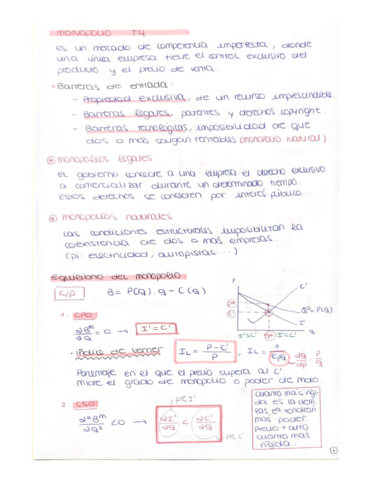 MONOPOLIO T4
Es un mercado de competencia imperfecta, donde
una única empresa tiene el control exclusivo del
producto y el precio de venta.
• Barreras de entrada:
- Propiedad exclusiva, de un recurso imprescindible
- Barreras legales, patentes y derechos copyright.
- Barreras tecnológicas, imposibilidad de que
dos o más salgan rentables (MONOPOLIO NATURAL)
monopolios legales
El gobierno concede a una empresa el derecho exclusivo
a comercializar durante un determinado tiempo.
Estos derechos se conceden por interés público.
monopolios naturales
Las condiciones estructurales imposibilitan la
coexistencia de dos o más empresas.
(Pj: electricidad, autopistas...)
Equilibrio del monopolio
C/P B = P(q) · q - C(q)
1. CPO
∂Bᵐ/∂q = 0 → I' = C'
P C' Qᴰ=P(q) I' q
I'>C' I'<C'
• Índice de Lerner I_L = P - C'/P , I_L =
dq/dp P/q
Porcentaje en el que el precio supera al C'
mide el grado de monopolio o poder de mdo.
2. CSO
∂²Bᵐ/∂q² < 0 → ∂I'/∂q < ∂C'/∂q
pte I'
pte C'
cuanto más rígi
da es la dem
as él tendrán
más poder
precio + alto
cuanto más
rígida.